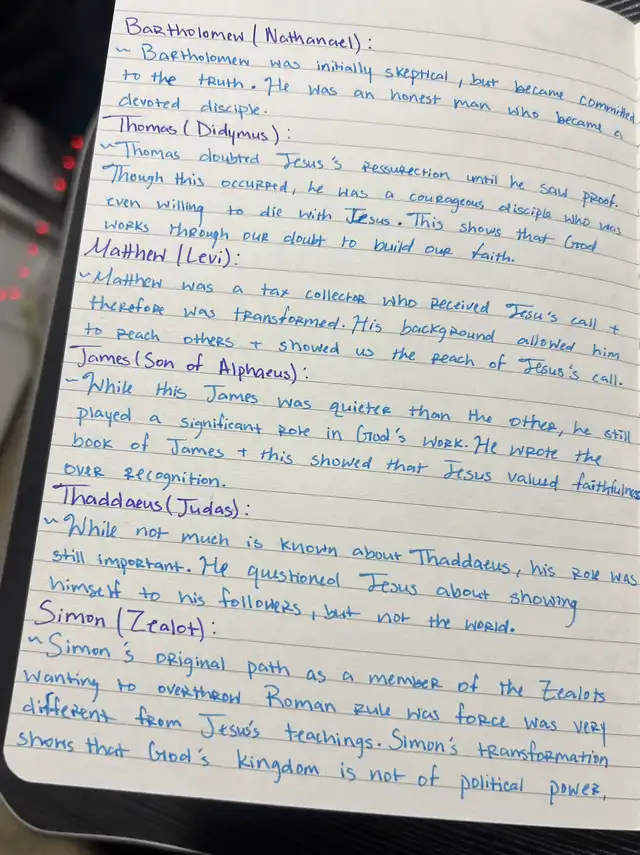 Bartholomew (Nathanael):
~ Bartholomew was initially skeptical, but became committed
to the truth. He was an honest man who became a
devoted disciple.
Thomas (Didymus):
~Thomas doubted Jesus's ressurection until he saw proof.
Though this occurred, he was a courageous disciple who was
even willing to die with Jesus. This shows that God
works through our doubt to build our faith.
Matthew (Levi):
~Matthew was a tax collector who received Jesu's call +
therefore was transformed. His background allowed him
to reach others + showed us the reach of Jesus's call.
James (Son of Alphaeus):
~While this James was quieter than the other, he still
played a significant role in God's work. He wrote the
book of James + this showed that Jesus valued faithfulness
over recognition.
Thaddaeus (Judas):
~While not much is known about Thaddaeus, his role was
still important. He questioned Jesus about showing
himself to his followers, but not the world.
Simon (Zealot):
~Simon's original path as a member of the Zealots
wanting to overthrow Roman rule was force was very
different from Jesus's teachings. Simon's transformation
shows that God's kingdom is not of political power,